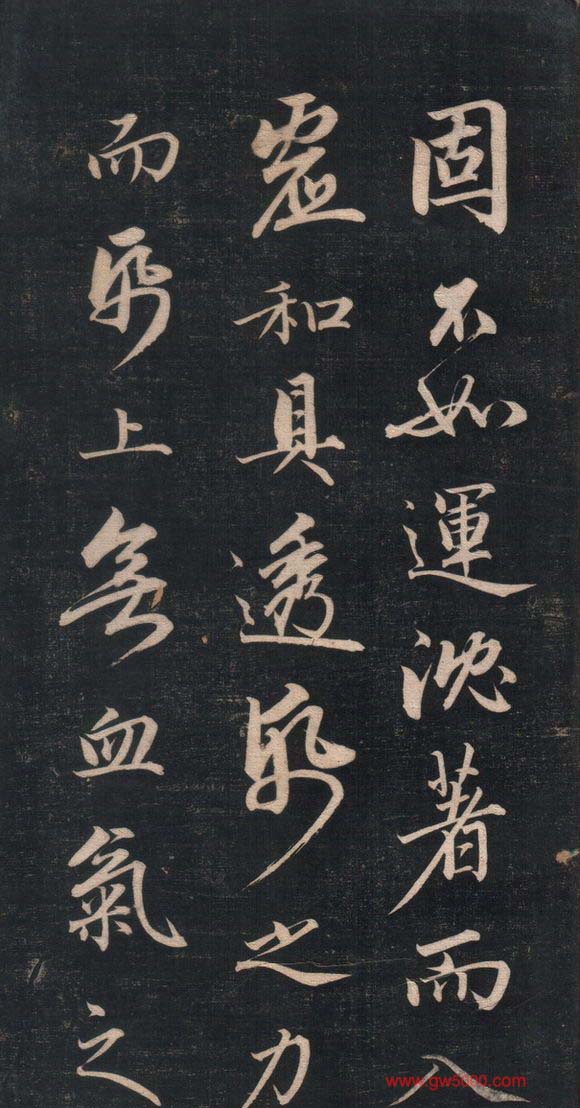 固不如運沈著而入
虛和具透帋之力
而帋上無血氣之
www.gw5000.com